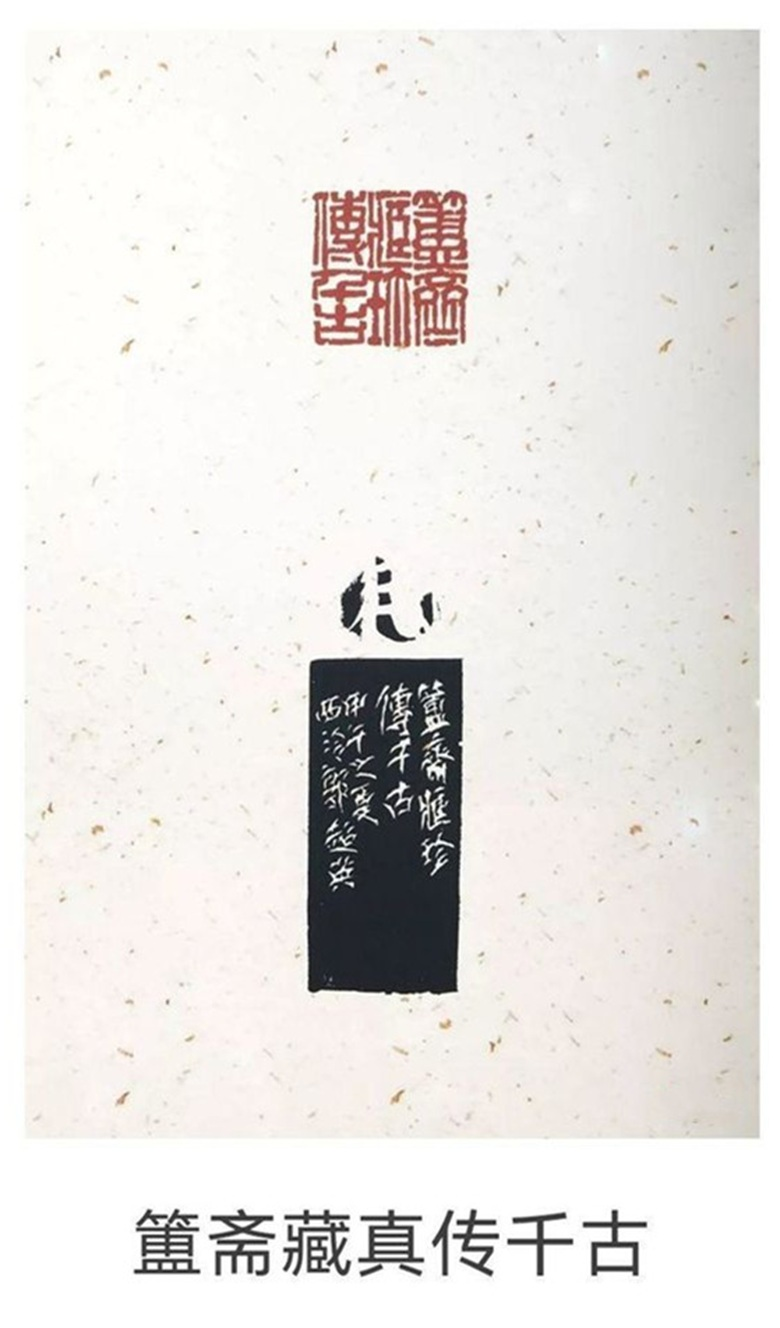 簠齋
藏珍
傳千古
簠齋藏珍
傳千古
甲午之夏
西泠
簠斋藏真传千古